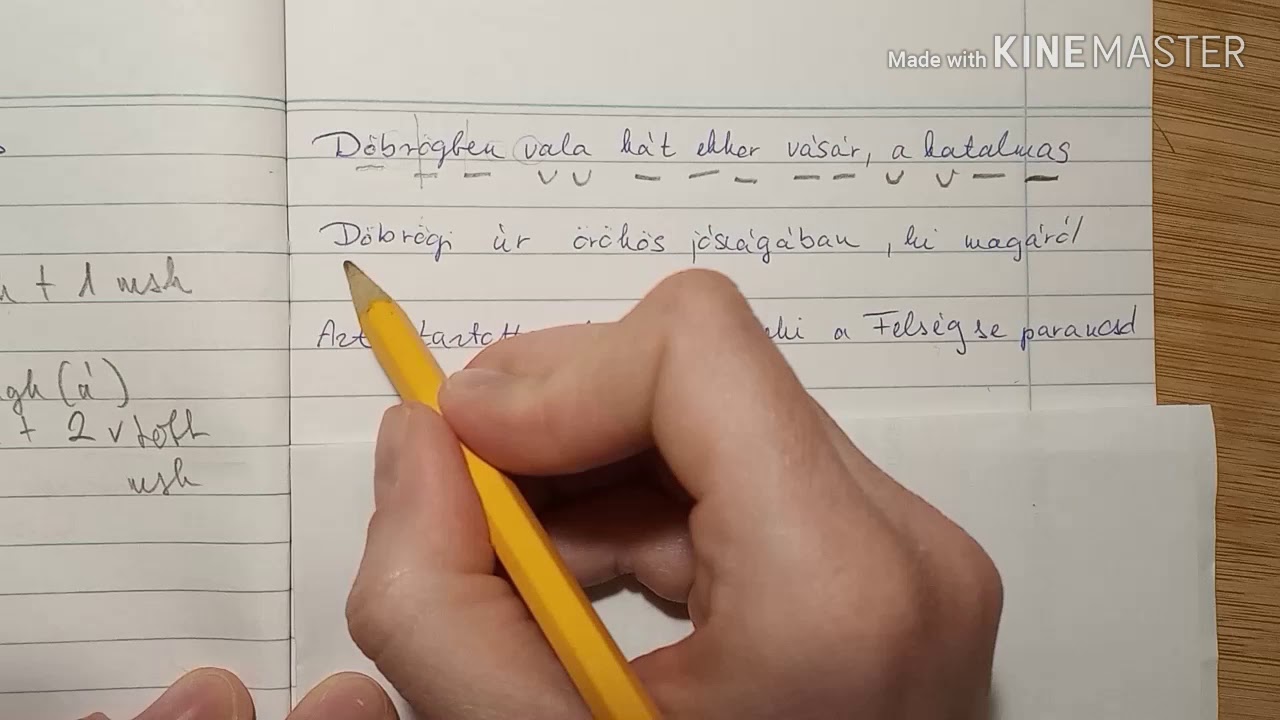 Made with KINEMASTER
Döbrögben vala hát ekkor vásár, a hatalmas
Döbrögi úr örökös jószágában, ki magáról
Azt tartott ki a Felség se parancsol
+ 1 msh
gh (á)
+ 2 v több
msh